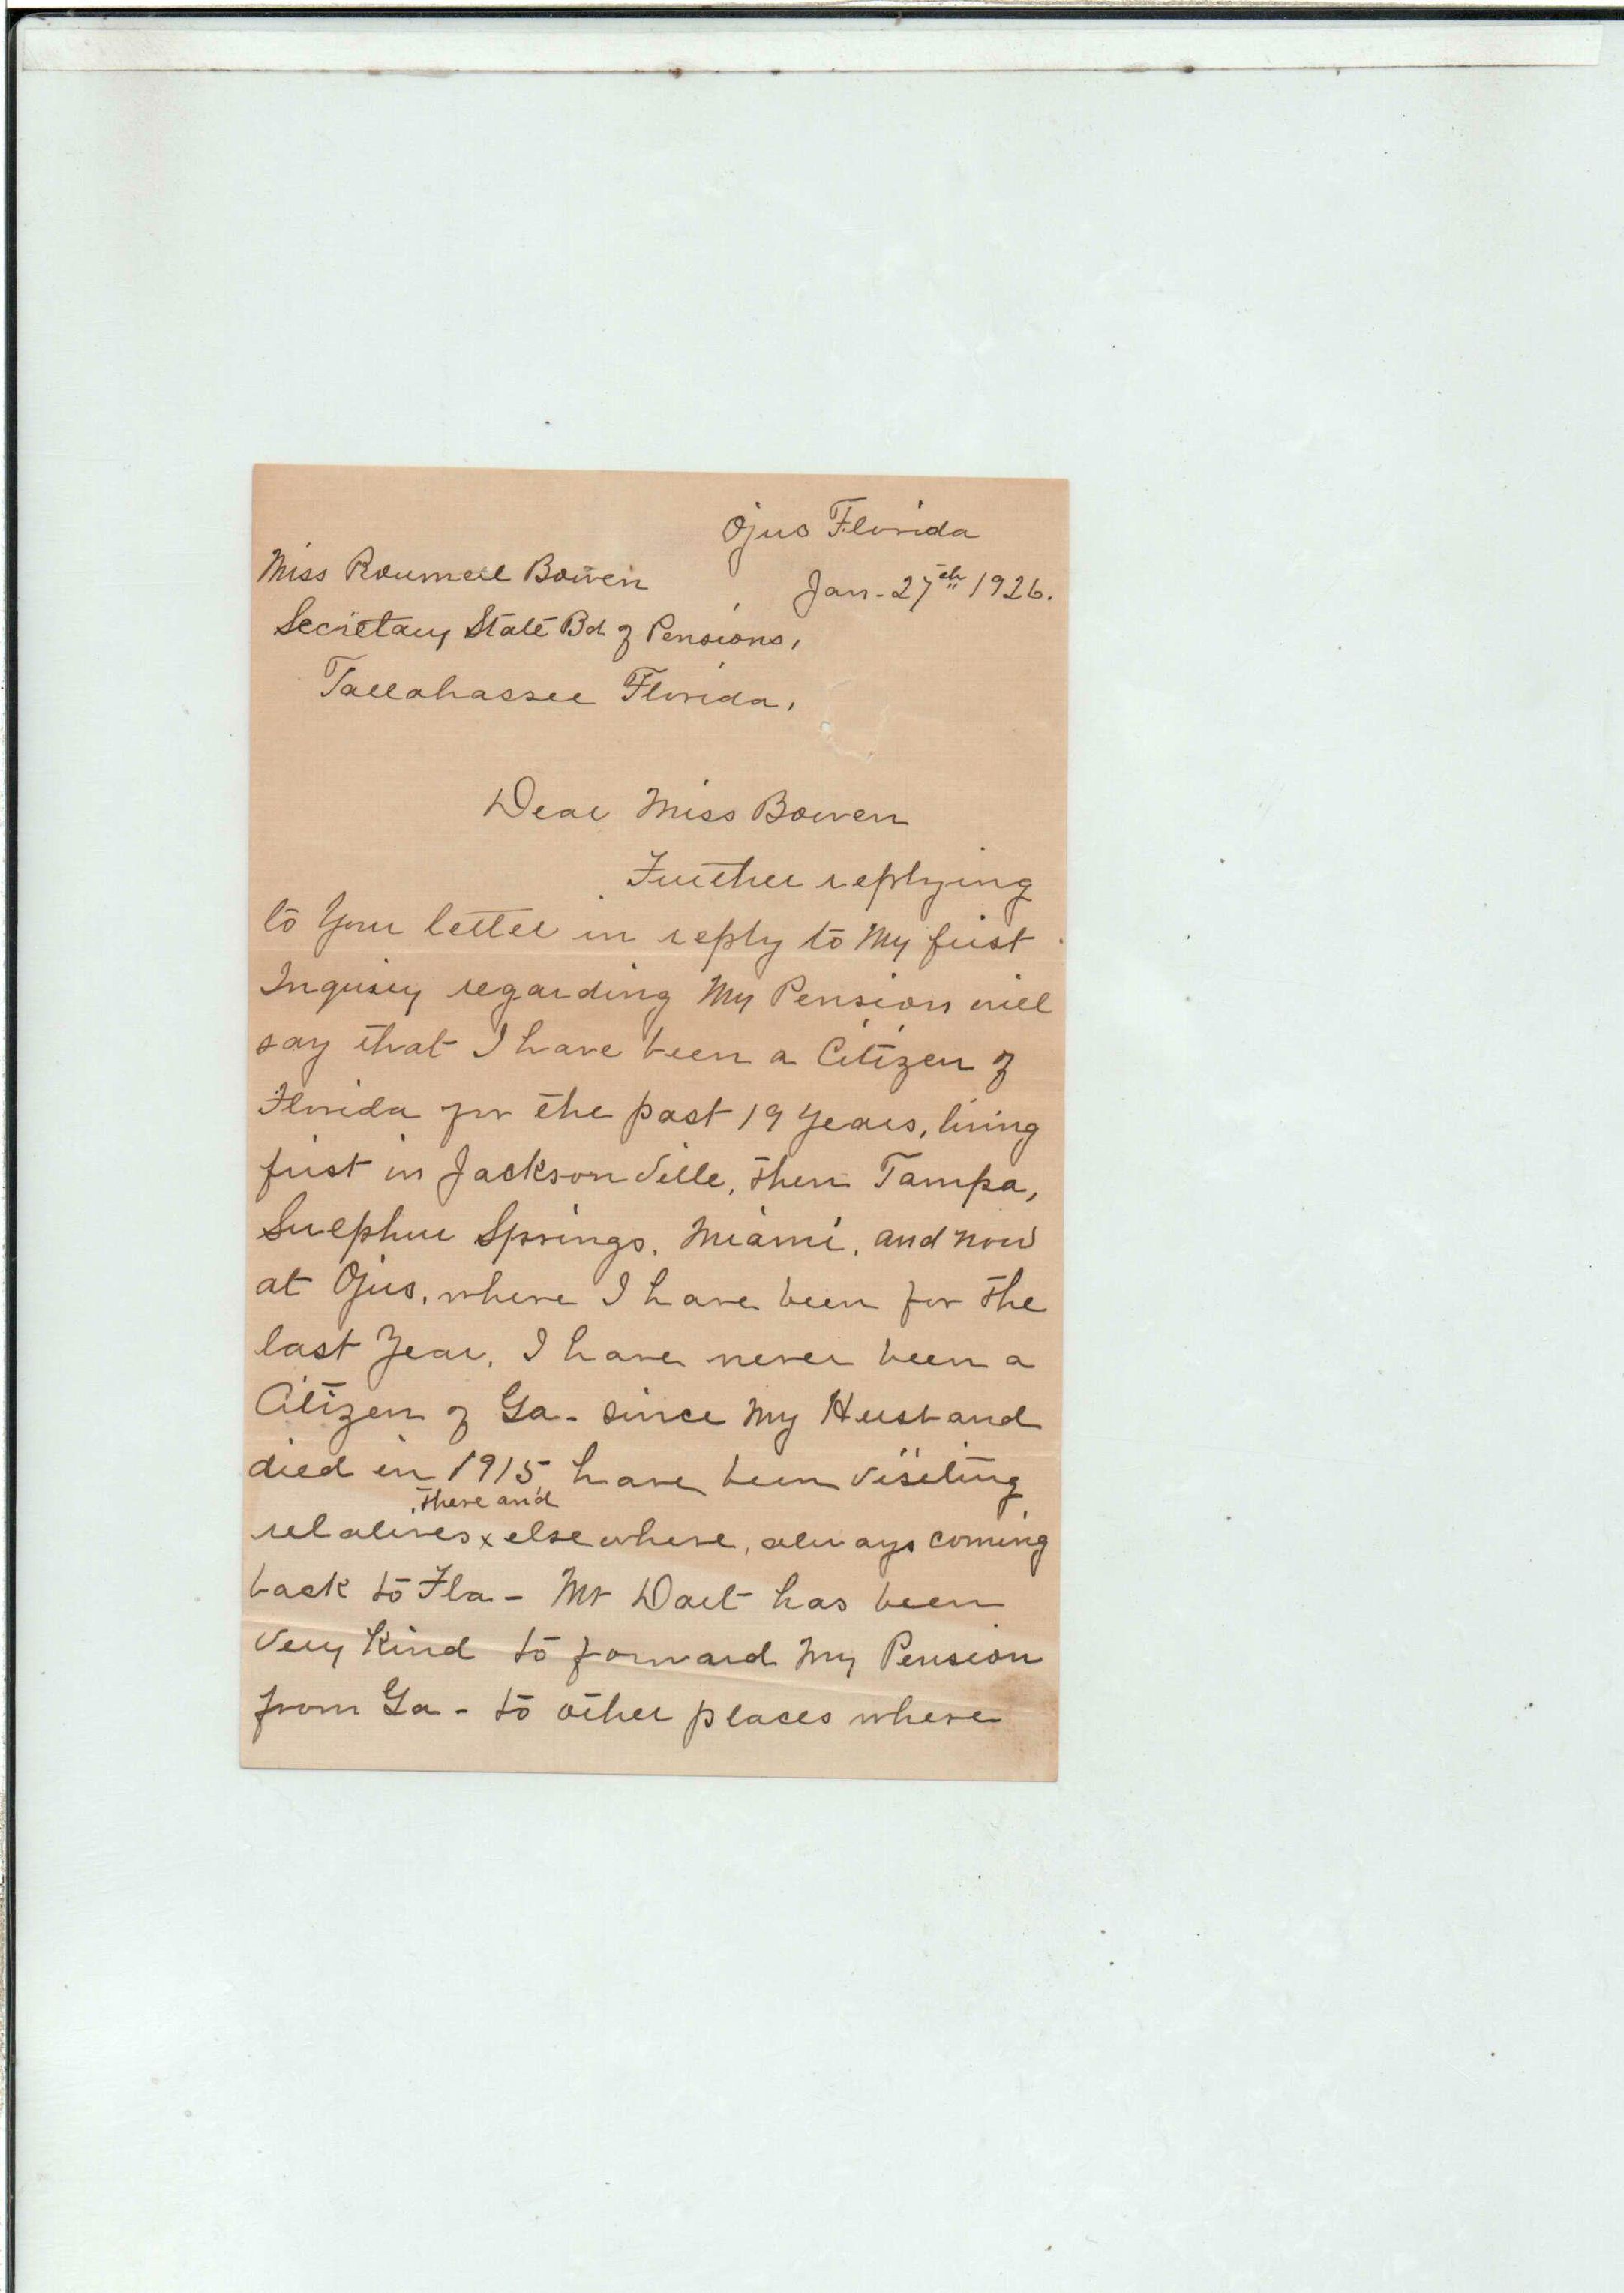 Ojus Florida
Miss Roumel Bowen
Jan. 27th 1926.
Secretary State Bd of Pensions,
Tallahassee Florida,
Dear Miss Bowen
Further replying
to Your letter in reply to My first
Inquiry regarding My Pension will
say that I have been a Citizen of
Florida for the past 19 Years, living
first in Jackson Ville, then Tampa,
Sulphur Springs, Miami, and now
at Ojus, where I have been for the
last Year, I have never been a
Citizen of Ga - since My Husband
died in 1915 have been visiting
there and
relatives x elsewhere, always coming
back to Fla - Mr Dart has been
Very Kind to forward My Pension
from Ga - to other places where